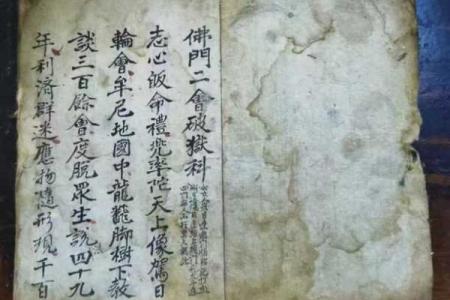 佛門二會破獄科
志心皈命禮兜率陀天上像駕日
輪會牟尼地國中龍脚樹下
談三百餘會度脫眾生說四十九
年利濟群迷應物隨形現千百